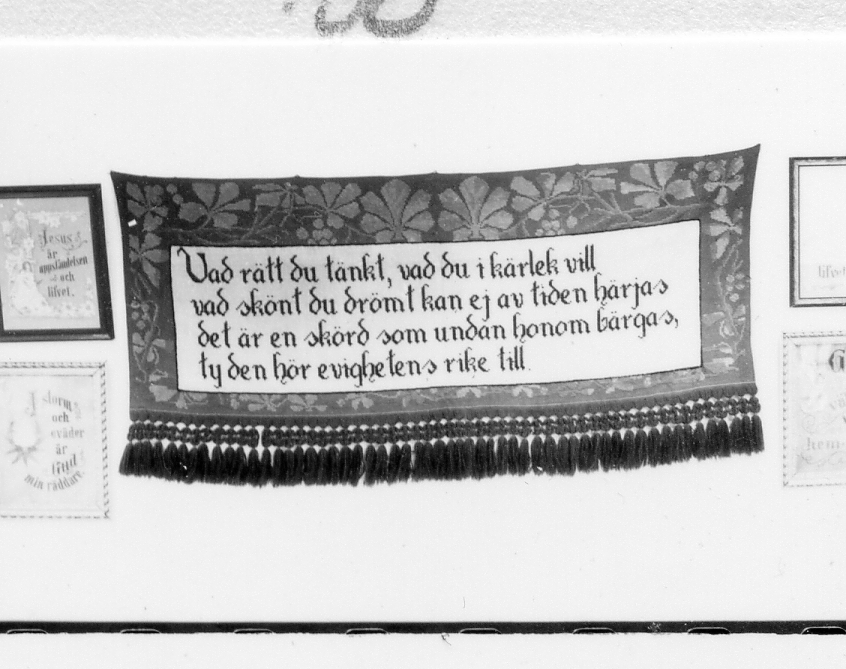 Vad rätt du tänkt, vad du i kärlek vill
vad skönt du drömt kan ej av tiden härjas
det är en skörd som undan honom bärgas,
ty den hör evighetens rike till
Jesus
är
uppståndelsen
och
lifvet.
I storm
och
oväder
är
Gud
min räddare.